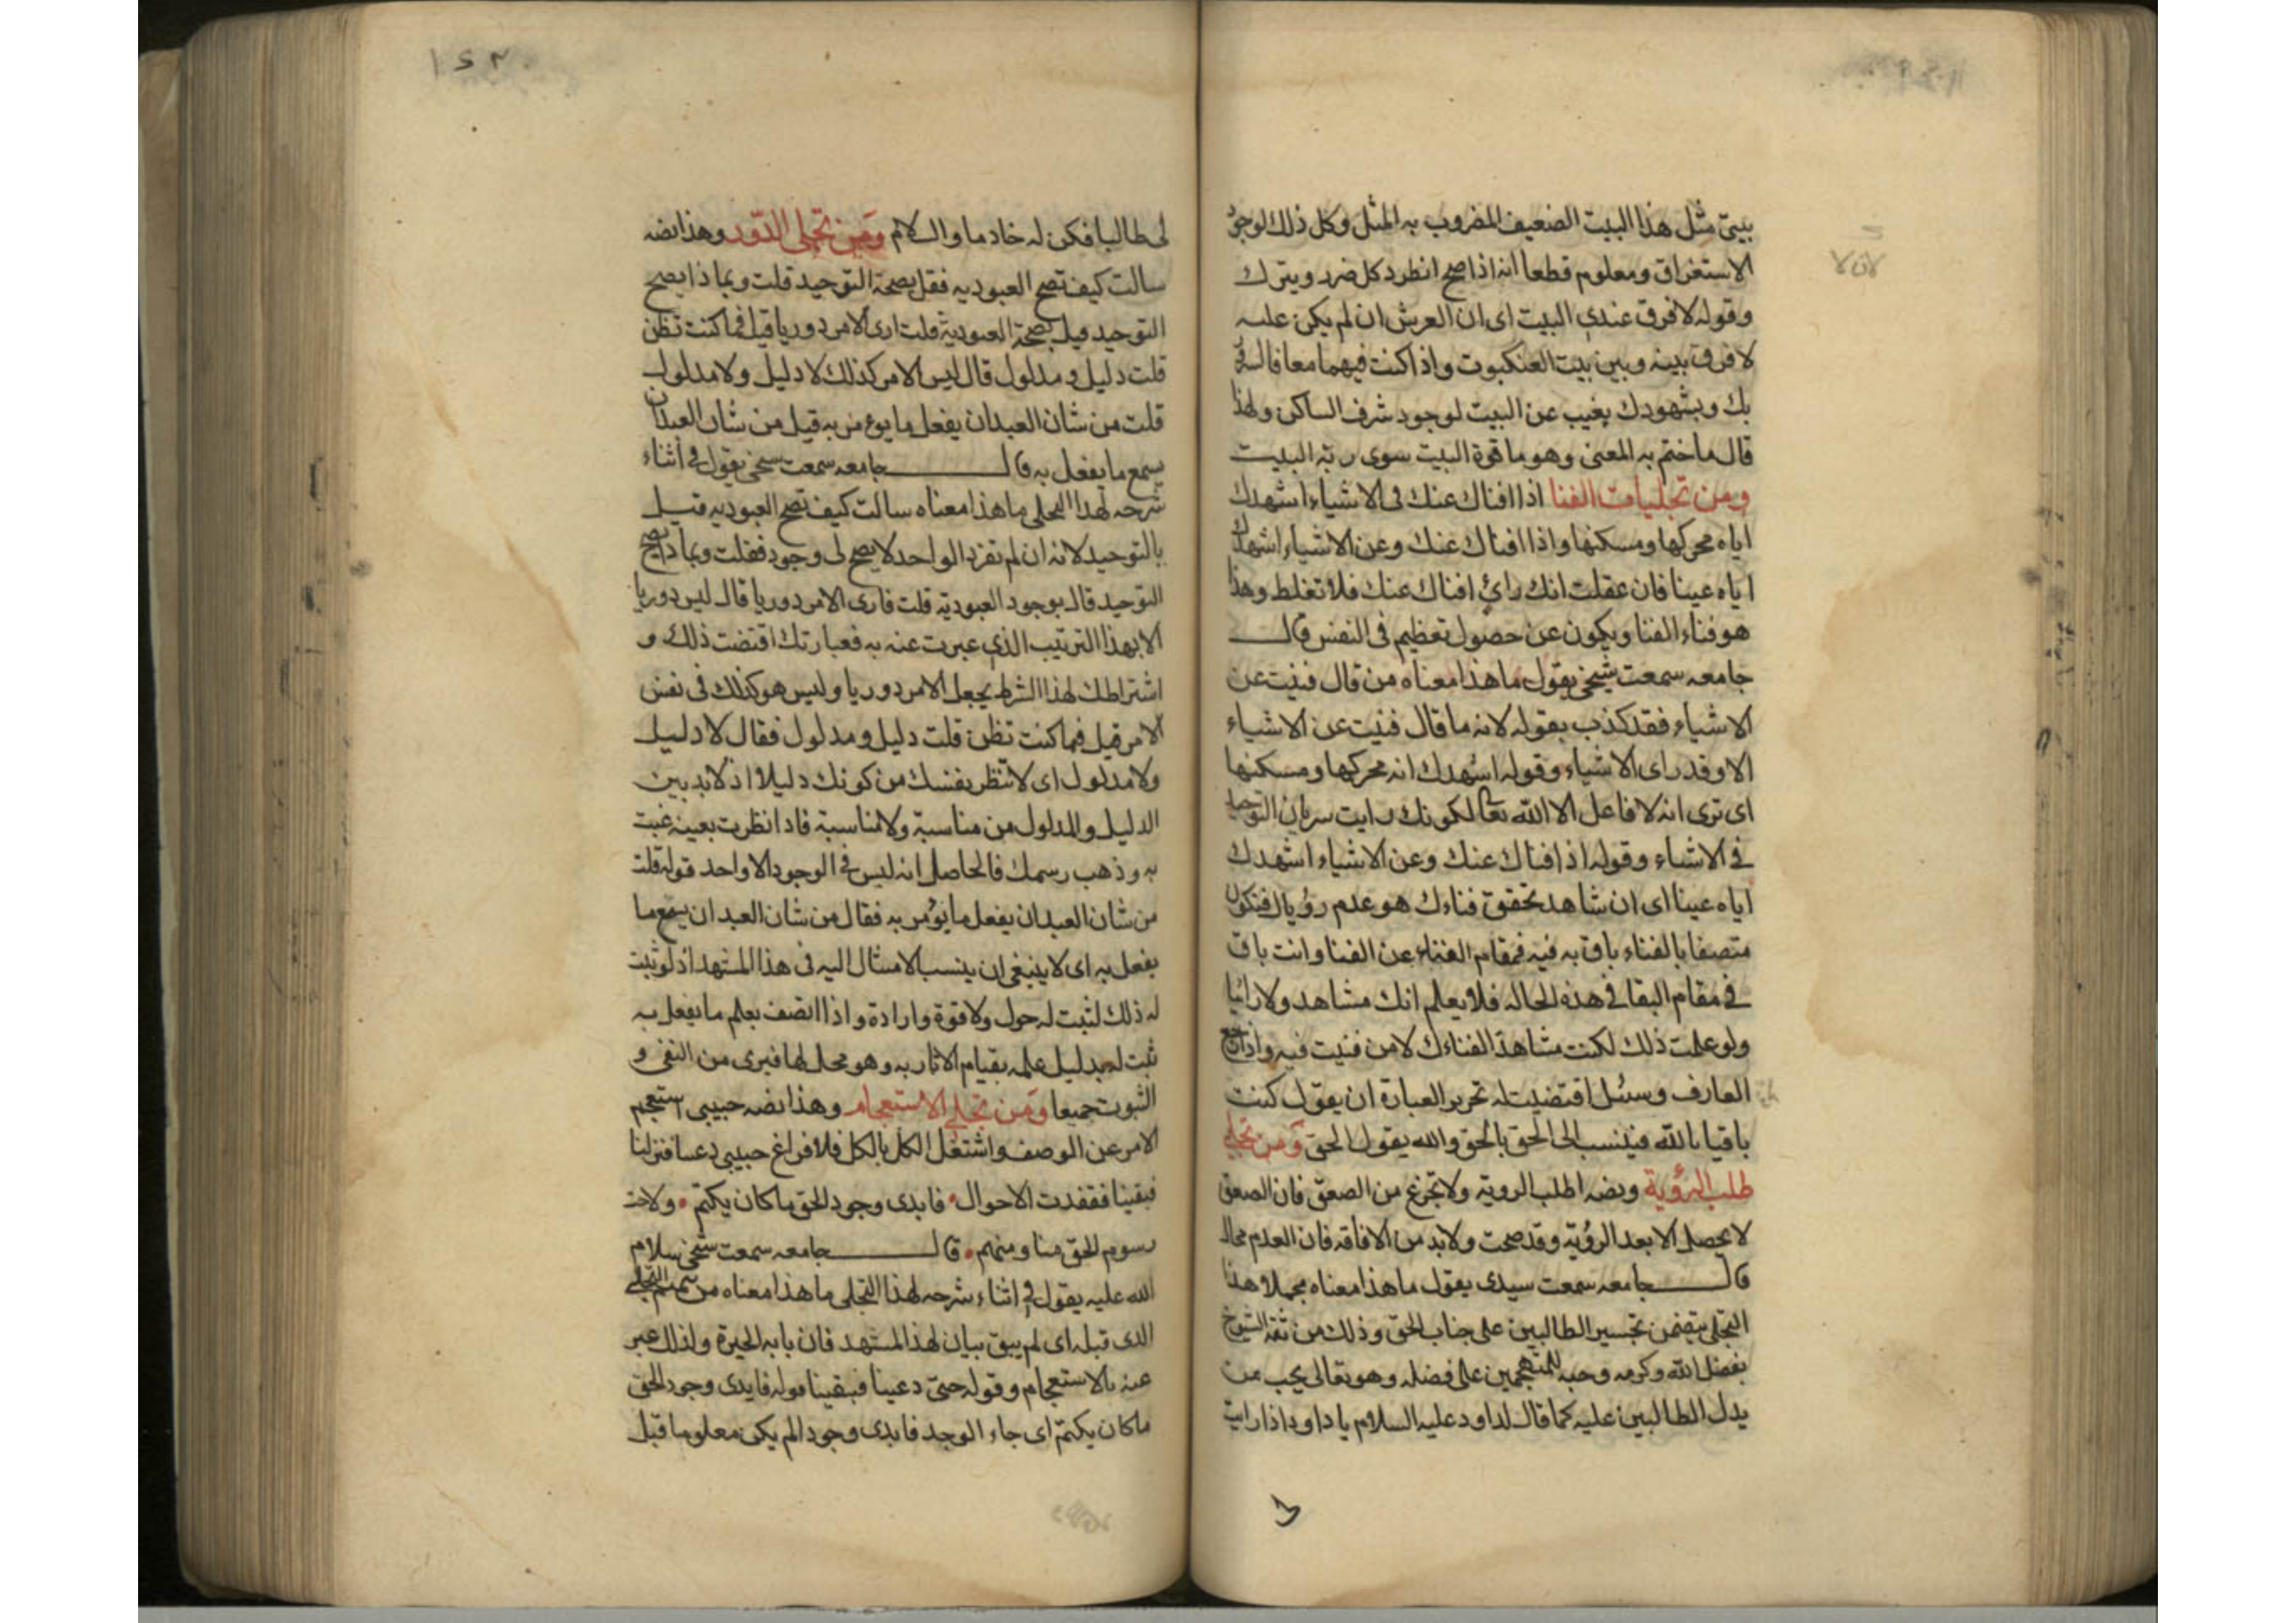 بيتي مثل هذا البيت الضعيف المضروب به المثل وكل ذلك لوجود
الاستغراق ومعلوم قطعا انه اذا صح انطرد كل ضرر ويترك
وقوله لا فرق عندي البيت اى ان العرش ان لم يكن عليه
لا فرق بينه وبين بيت العنكبوت واذا كنت فيهما معا فالسر
بك وبشهودك يغيب عن البيت لوجود شرف الساكن ولهذا
قال ما ختم به المعنى وهو ما قوة البيت سوى ربّة البيت
ومن تجليات الفنا اذا افناك عنك فى الاشياء اشهدك
اياه محركها ومسكنها واذا افناك عنك وعن الاشياء اشهدك
اياه عينا فان عقلت انك رائ افناك عنك فلا تغلط وهذا
هو فناء الفنا ويكون عن حصول تعظيم فى النفس قال
جامعه سمعت شيخى يقول ما هذا معناه من قال فنيت عن
الاشياء فقد كذب بقوله لانه ما قال فنيت عن الاشياء
الا وقد راى الاشياء وقوله اشهدك انه محركها ومسكنها
اى ترى انه لا فاعل الا الله تعا لكونك رايت سريان التوحيد
فى الاشياء وقوله اذا افناك عنك وعن الاشياء اشهدك
اياه عينا اى ان شاهد تحقق فناءك هو عدم رؤياك فتكون
متصفا بالفناء باق به فيه فمقام الفناء عن الفنا وانت باق
فى مقام البقا فى هذه الحاله فلا يعلم انك مشاهد ولا رائيا
ولو علمت ذلك لكنت مشاهدا لفناءك لا من فنيت فيه واذا رجع
العارف وسئل اقتضيت له تحرير العبارة ان يقول كنت
باقيا بالله فينسب الى الحق بالحق والله يقول الحق ومن تجلى
طلب الرؤية ونصه اطلب الروية ولا تجزع من الصعق فان الصعق
لا يحصل الا بعد الرؤية وقد صحت ولا بد من الافاقه فان العدم محال
قال جامعه سمعت سيدى يقول ما هذا معناه مجملا هذا
التجلى يتضمن تجسير الطالبين على جناب الحق وذلك من ثقة الشيوخ
بفضل الله وكرمه وحبه للمتهجمين على فضله وهو تعالى يحب من
يدل الطالبين عليه كما قال لداود عليه السلام يا داود اذا رايت
١٤٢
لى طالبا فكن له خادما والسلام ومن تجلى الدّور وهذا نصه
سالت كيف تصح العبوديه فقل بصحة التوحيد قلت وبماذا يصح
التوحيد قيل بصحة العبودية قلت ارى الامر دوريا قيل فما كنت تظن
قلت دليل ومدلول قال ليس الامر كذلك لا دليل ولا مدلول
قلت من شان العبد ان يفعل ما يوءمر به قيل من شان العبد ان
يسمع ما يفعل به قال جامعه سمعت شيخى يقول فى اثناء
شرحه لهذا التجلى ما هذا معناه سالت كيف تصح العبوديه قيل
بالتوحيد لانه ان لم تفرد الواحد لا يصح لى وجود فقلت وبماذا يصح
التوحيد قال بوجود العبودية قلت فارى الامر دوريا قال ليس دوريا
الا بهذا الترتيب الذي عبرت عنه به فعبارتك اقتضت ذلك و
اشتراطك لهذا الشرط يجعل الامر دوريا وليس هو كذلك فى نفس
الامر قيل فما كنت تظن قلت دليل ومدلول فقال لا دليل
ولا مدلول اى لا تنظر بنفسك من كونك دليلا اذ لا بد بين
الدليل والمدلول من مناسبة ولا مناسبة فاذا نظرت بعينه غبت
به وذهب رسمك فالحاصل انه ليس فى الوجود الا واحد قوله قلت
من شان العبد ان يفعل ما يؤمر به فقال من شان العبد ان يسمع ما
يفعل به اى لا ينبغى ان ينسب الامتثال اليه فى هذا المشهد اذ لو ثبت
له ذلك لثبت له حول ولا قوة وارادة واذا اتصف بعلم ما يفعل به
ثبت له بدليل علمه بقيام الاثار به وهو محل لها فبرى من النفى و
الثبوت جميعا ومن تجلى الاستعجام وهذا نصه حبيبى استعجم
الامر عن الوصف واشتغل الكل بالكل فلا فراغ حبيبى دعينا فنزلنا
فبقينا ففقدت الاحوال فابدى وجود الحق ما كان يكتم ولاحت
رسوم الحق منا ومنهم قال جامعه سمعت شيخى سلام
الله عليه يقول فى اثناء شرحه لهذا التجلى ما هذا معناه من سمع التجلى
الذى قبله اى لم يبق بيان لهذا المشهد فان بابه الحيرة ولذلك عبر
عنه بالاستعجام وقوله حتى دعينا فبقينا قوله فابدى وجود الحق
ما كان يكتم اى جاء الوجد فابدى وجودا لم يكن معلوما قبل